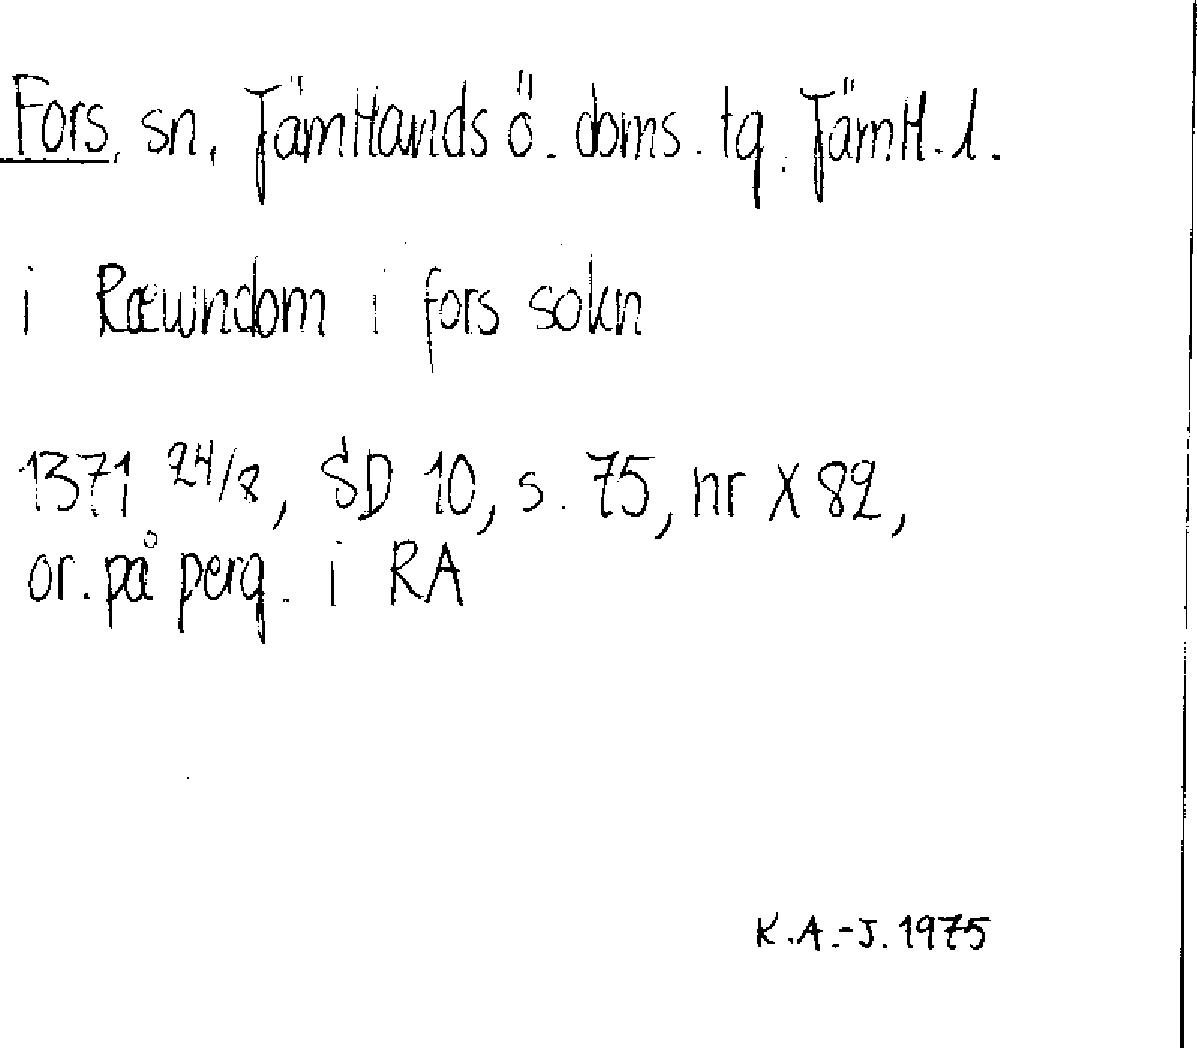 Fors, sn, Jämtlands ö. doms. tg. Jämtl. l.
i Ræwndom i fors sokn
1371 24/8, SD 10, s. 75, nr X 82,
or. på perg. i RA
K.A.-J. 1975